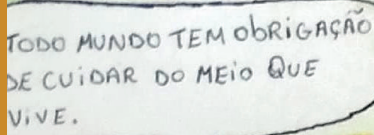 TODO MUNDO TEM ObRiGAÇÃO
DE CUiDAR DO MEiO QUE
ViVE.